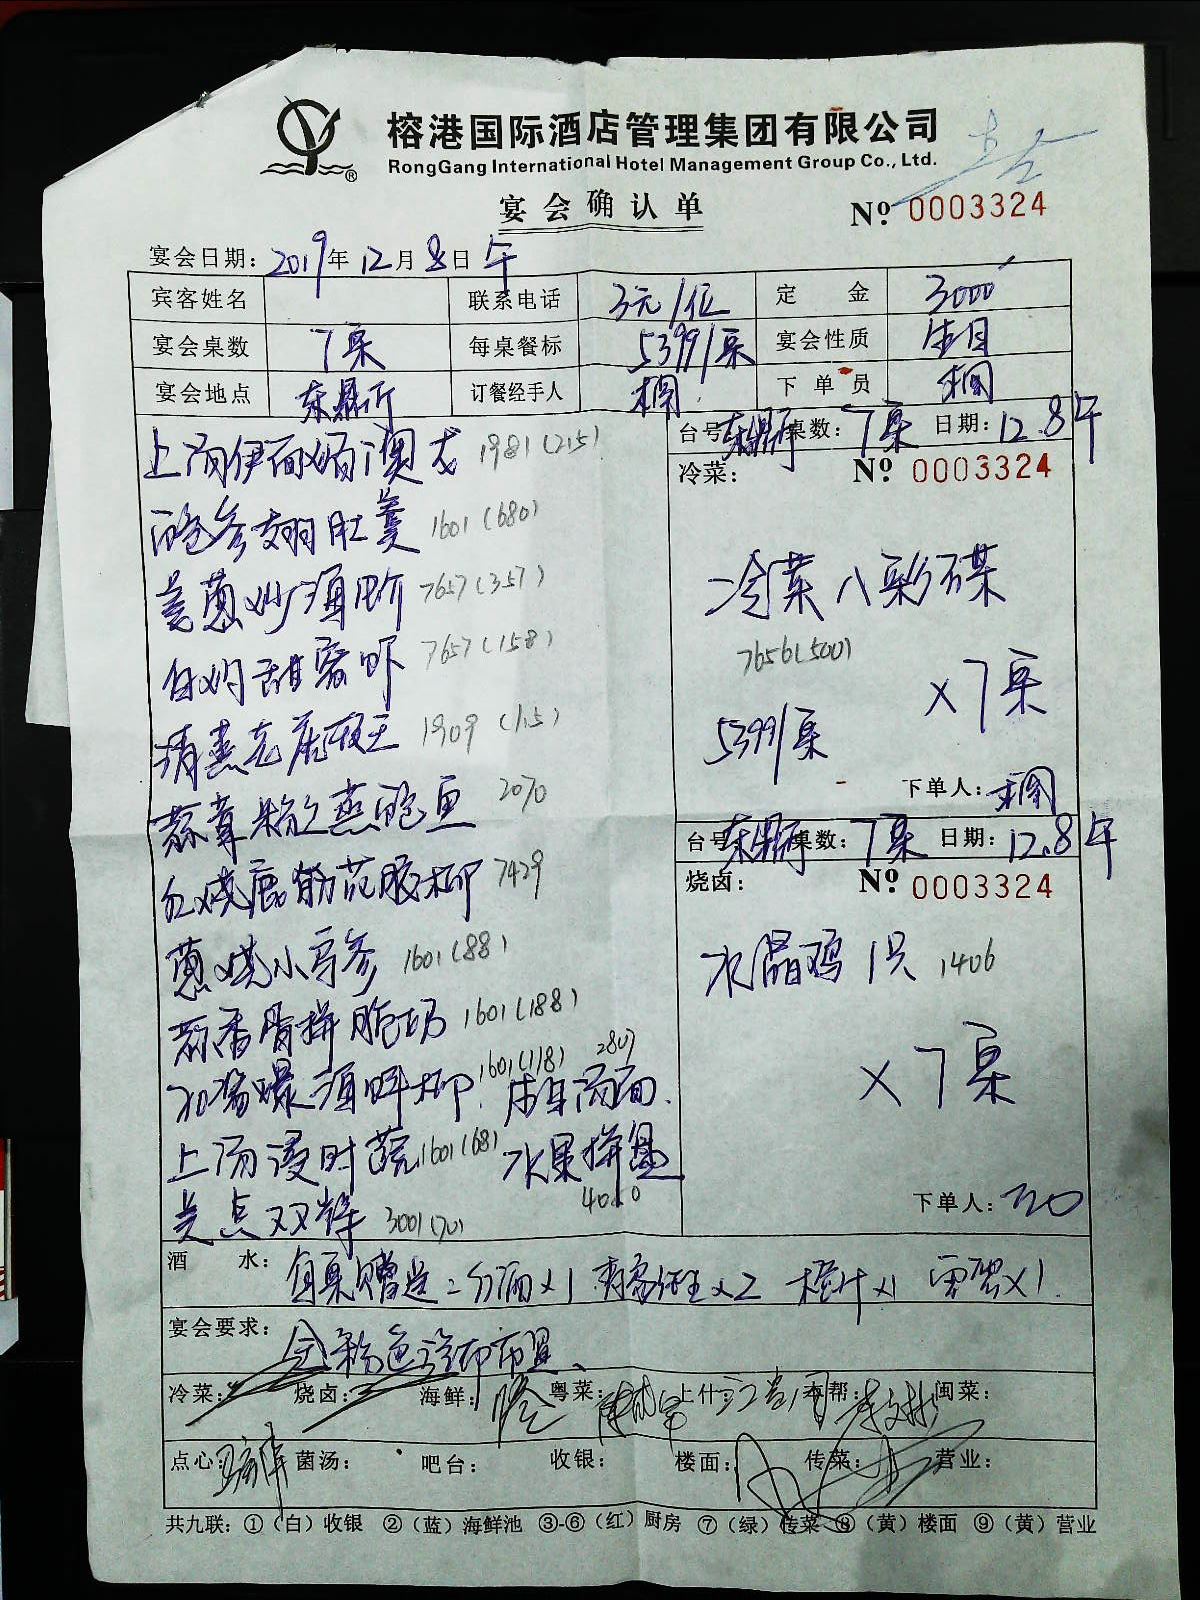 榕港国际酒店管理集团有限公司
RongGang International Hotel Management Group Co., Ltd.
宴会确认单
№ 0003324
宴会日期: 2019年12月8日午
宾客姓名 联系电话 3元/位 定金 3000
宴会桌数 7桌 每桌餐标 5399/桌 宴会性质 生日
宴会地点 东鼎厅 订餐经手人 下单员
上汤伊面焗澳龙 1981(215)
鲍参翅肚羹 1601(680)
姜葱炒 7657(357)
白灼甜蜜虾 7657(158)
清蒸 1909
蒜茸粉丝蒸鲍鱼 2070
红烧鹿筋花胶柳 7429
葱烧小刺参 1601(88)
蒜香骨拼脆 1601(188)
酱爆海鲜柳 1601(118) 生日汤面 280
上汤浸时蔬 1601(68) 水果拼盘
美点双辉 3001(70) 4010
台号: 东鼎厅 桌数: 7桌 日期: 12.8午
冷菜: № 0003324
冷菜八彩碟
7656(500)
×7桌
5399/桌
下单人:
台号: 东鼎厅 桌数: 7桌 日期: 12.8午
烧卤: № 0003324
水晶鸡1只 1406
×7桌
下单人:
酒水: 每桌赠送: ×1 ×2 橙汁×1 雪碧×1
宴会要求: 全粉色台布布置
冷菜: 烧卤: 海鲜: 粤菜: 上什: 本帮: 闽菜:
点心: 菌汤: 吧台: 收银: 楼面: 传菜: 营业:
共九联: ①(白)收银 ②(蓝)海鲜池 ③-⑥(红)厨房 ⑦(绿)传菜 ⑧(黄)楼面 ⑨(黄)营业